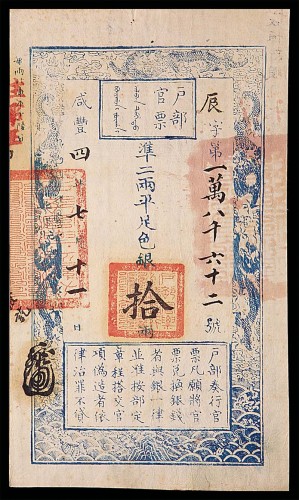 户部
官票
辰字第一萬八千六十二號
準二兩平足色銀拾兩
咸豐四年七月十一日
户部奏行官
票凡願將官
票兌換銀錢
者與銀一律
並準按部定
章程搭交官
項偽造者依
律治罪不貸